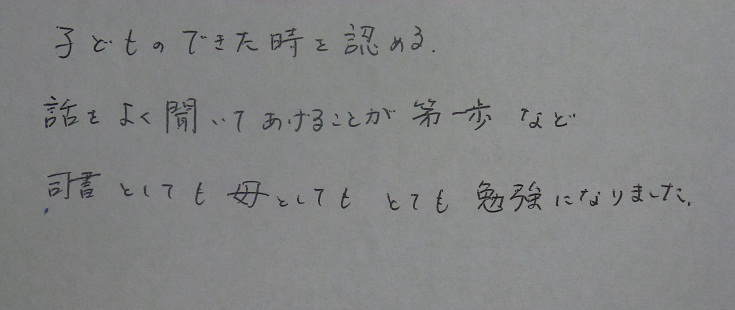 子どものできた時を認める.
話をよく聞いてあげることが第一歩など
司書としても母としてもとても勉強になりました.